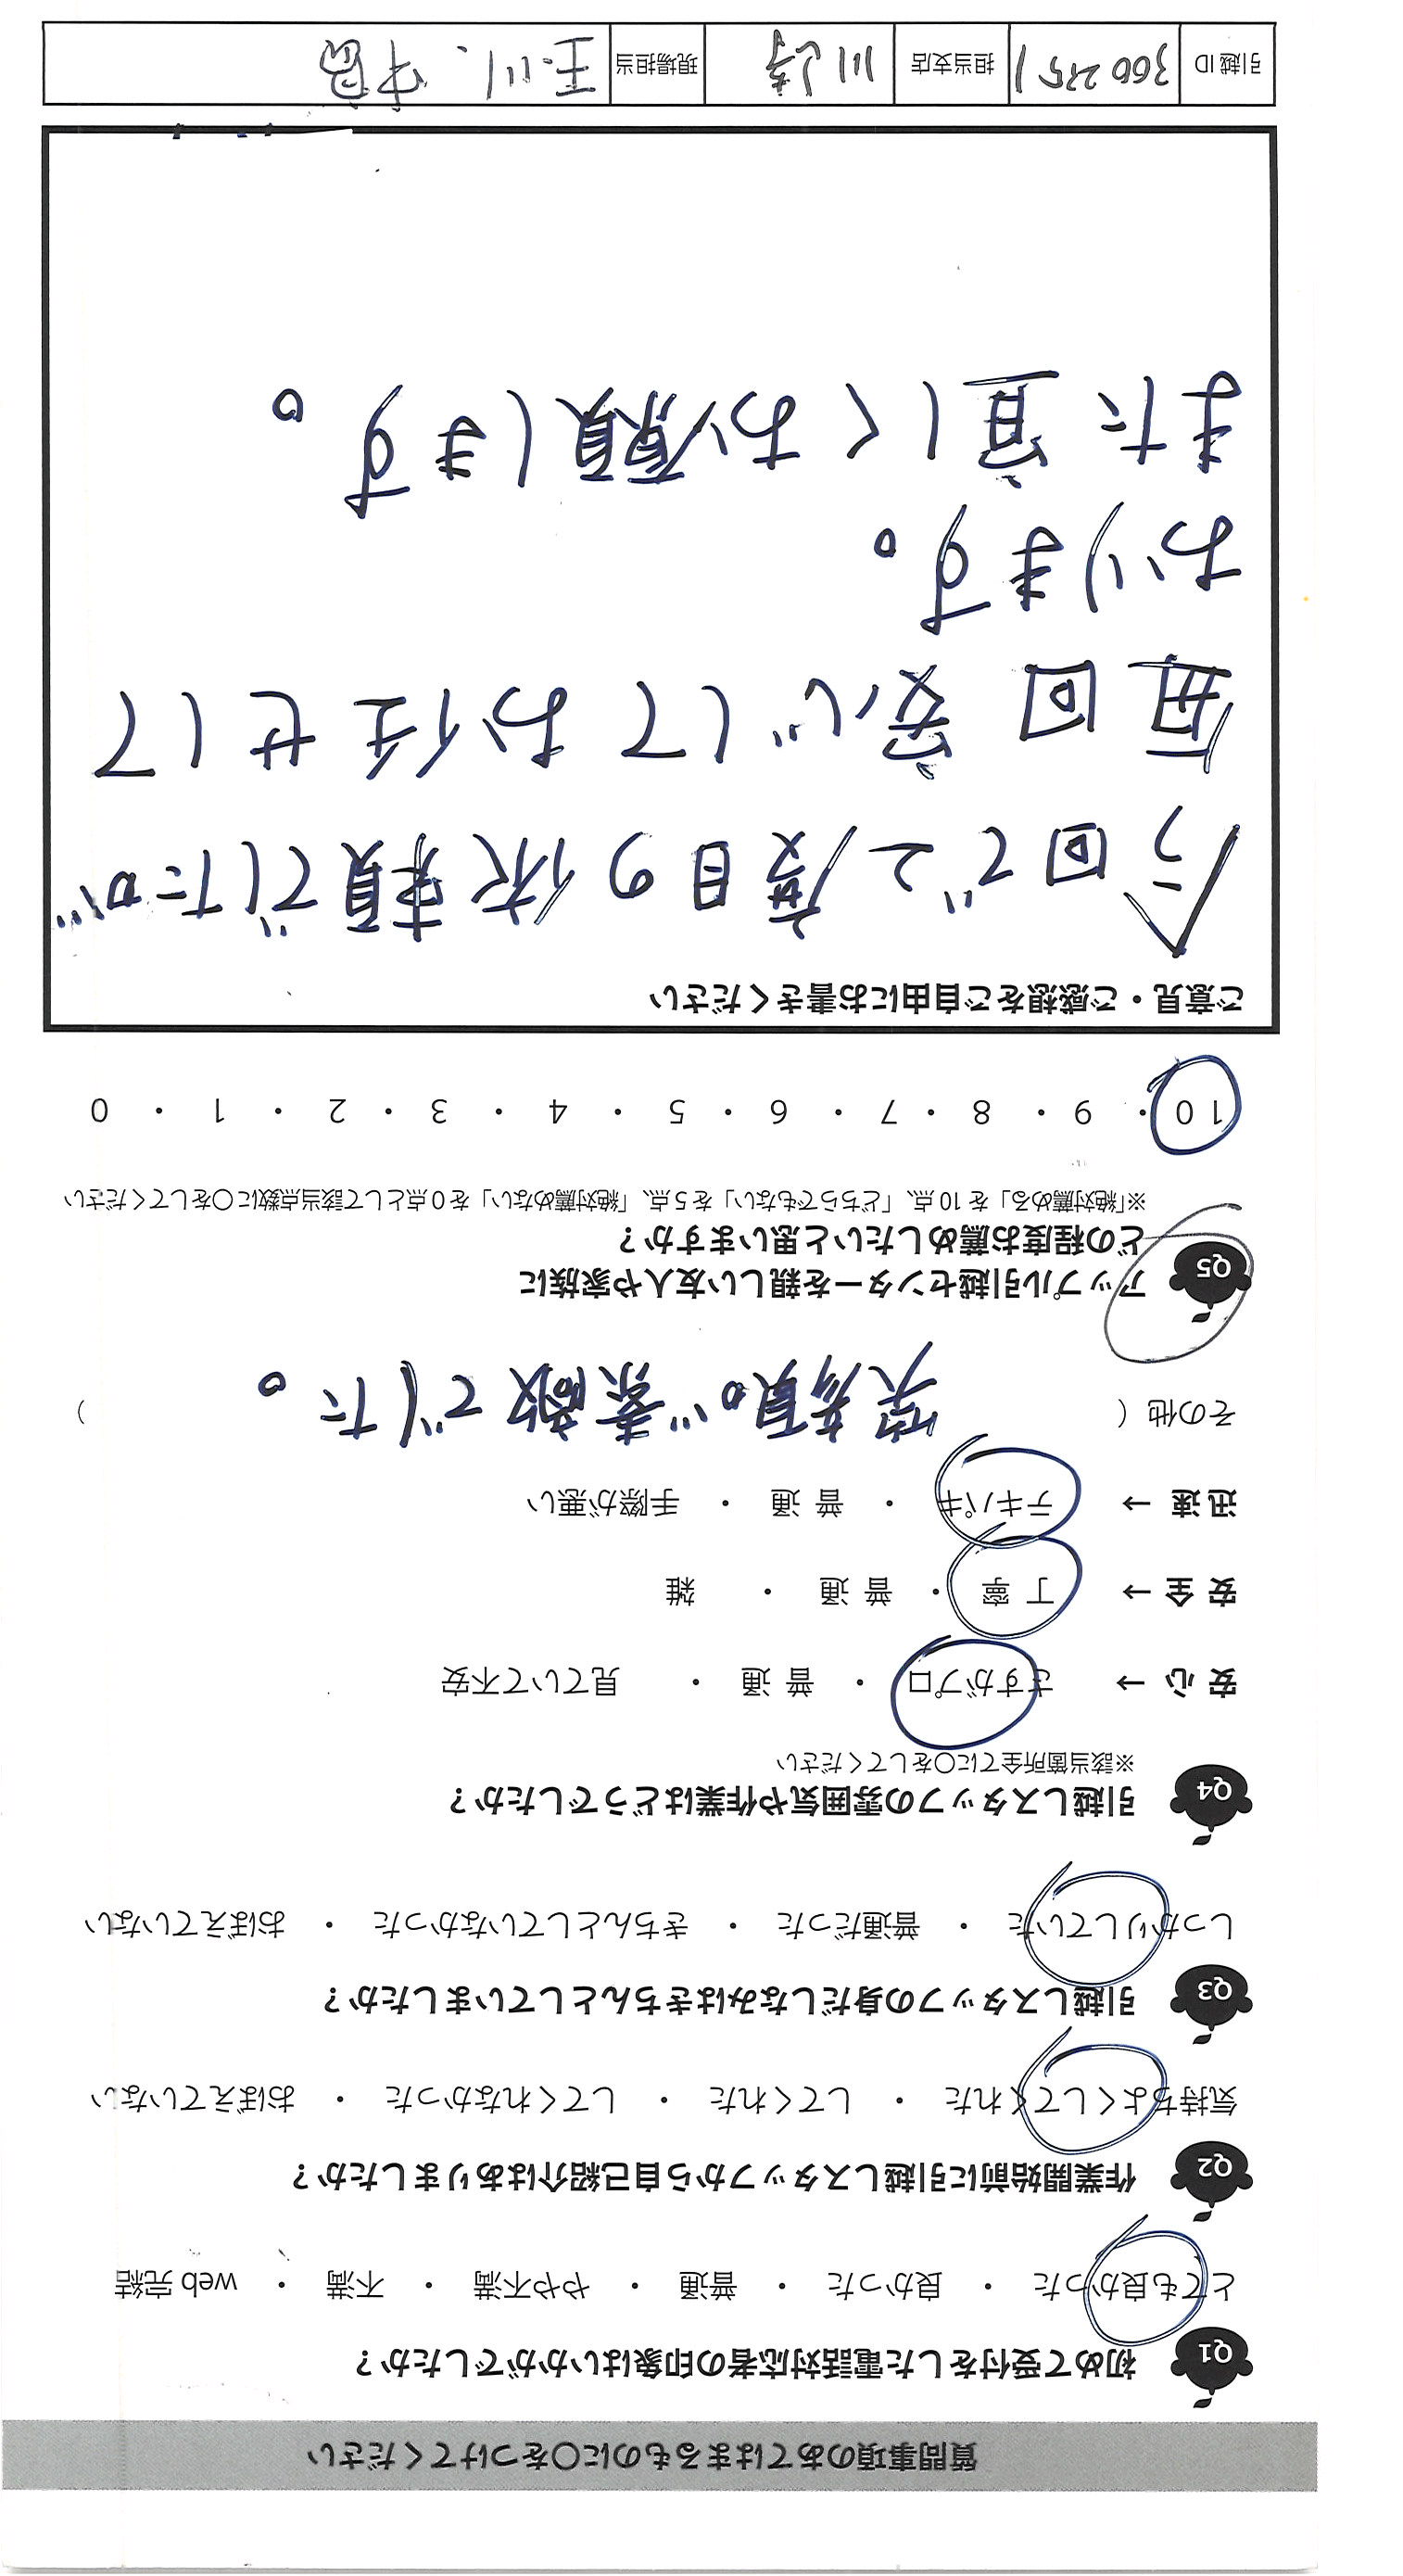 質問事項のあてはまるものに〇をつけてください
Q1 初めて受付をした電話対応者の印象はいかがでしたか？
とても良かった ・ 良かった ・ 普通 ・ やや不満 ・ 不満 ・ web 完結
Q2 作業開始前に引越しスタッフから自己紹介はありましたか？
気持ちよくしてくれた ・ してくれた ・ してくれなかった ・ おぼえていない
Q3 引越しスタッフの身だしなみはきちんとしていましたか？
しっかりしていた ・ 普通だった ・ きちんとしていなかった ・ おぼえていない
Q4 引越しスタッフの雰囲気や作業はどうでしたか？
※該当箇所全てに〇をしてください
安 心 → さすがプロ ・ 普 通 ・ 見ていて不安
安 全 → 丁 寧 ・ 普 通 ・ 雑
迅 速 → テキパキ ・ 普 通 ・ 手際が悪い
その他（ 笑顔が素敵でした。 ）
Q5 アップル引越センターを親しい友人や家族に
どの程度お薦めしたいと思いますか？
※「絶対薦める」を 10 点、「どちらでもない」を 5 点、「絶対薦めない」を 0 点として該当点数に〇をしてください
10 ・ 9 ・ 8 ・ 7 ・ 6 ・ 5 ・ 4 ・ 3 ・ 2 ・ 1 ・ 0
ご意見・ご感想をご自由にお書きください
今回で2度目の依頼でしたが
毎回安心してお任せして
おります。
また宜しくお願します。
引越 ID 担当支店 川崎 現場担当 玉川、中島